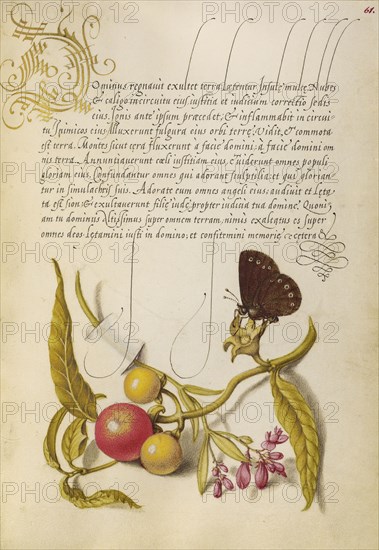 61.
Dominus regnauit exultet terra lætentur Insulę multę. Nubes
& caligo in circuitu eius iustitia et iudicium correctio sedis
eius. Ignis ante ipsum præcedet, & inflammabit in circui-
tu Inimicos eius. Illuxerunt fulgura eius orbi terrę: Vidit, & commota
est terra. Montes sicut cera fluxerunt a facie domini: a facie domini om
nis terra. Annuntiauerunt cæli iustitiam eius, & uiderunt omnes populi
gloriam eius. Confundantur omnes qui adorant sculptilia, et qui glorian
tur in simulachris suis. Adorate eum omnes angeli eius: audiuit et Lęta
ta est sion: & exultauerunt filię iudę propter iudicia tua domine. Quoni
am tu dominus Altissimus super omnem terram, nimis exaltatus es super
omnes deos. Lętamini iusti in domino: et confitemini memorię & cetera